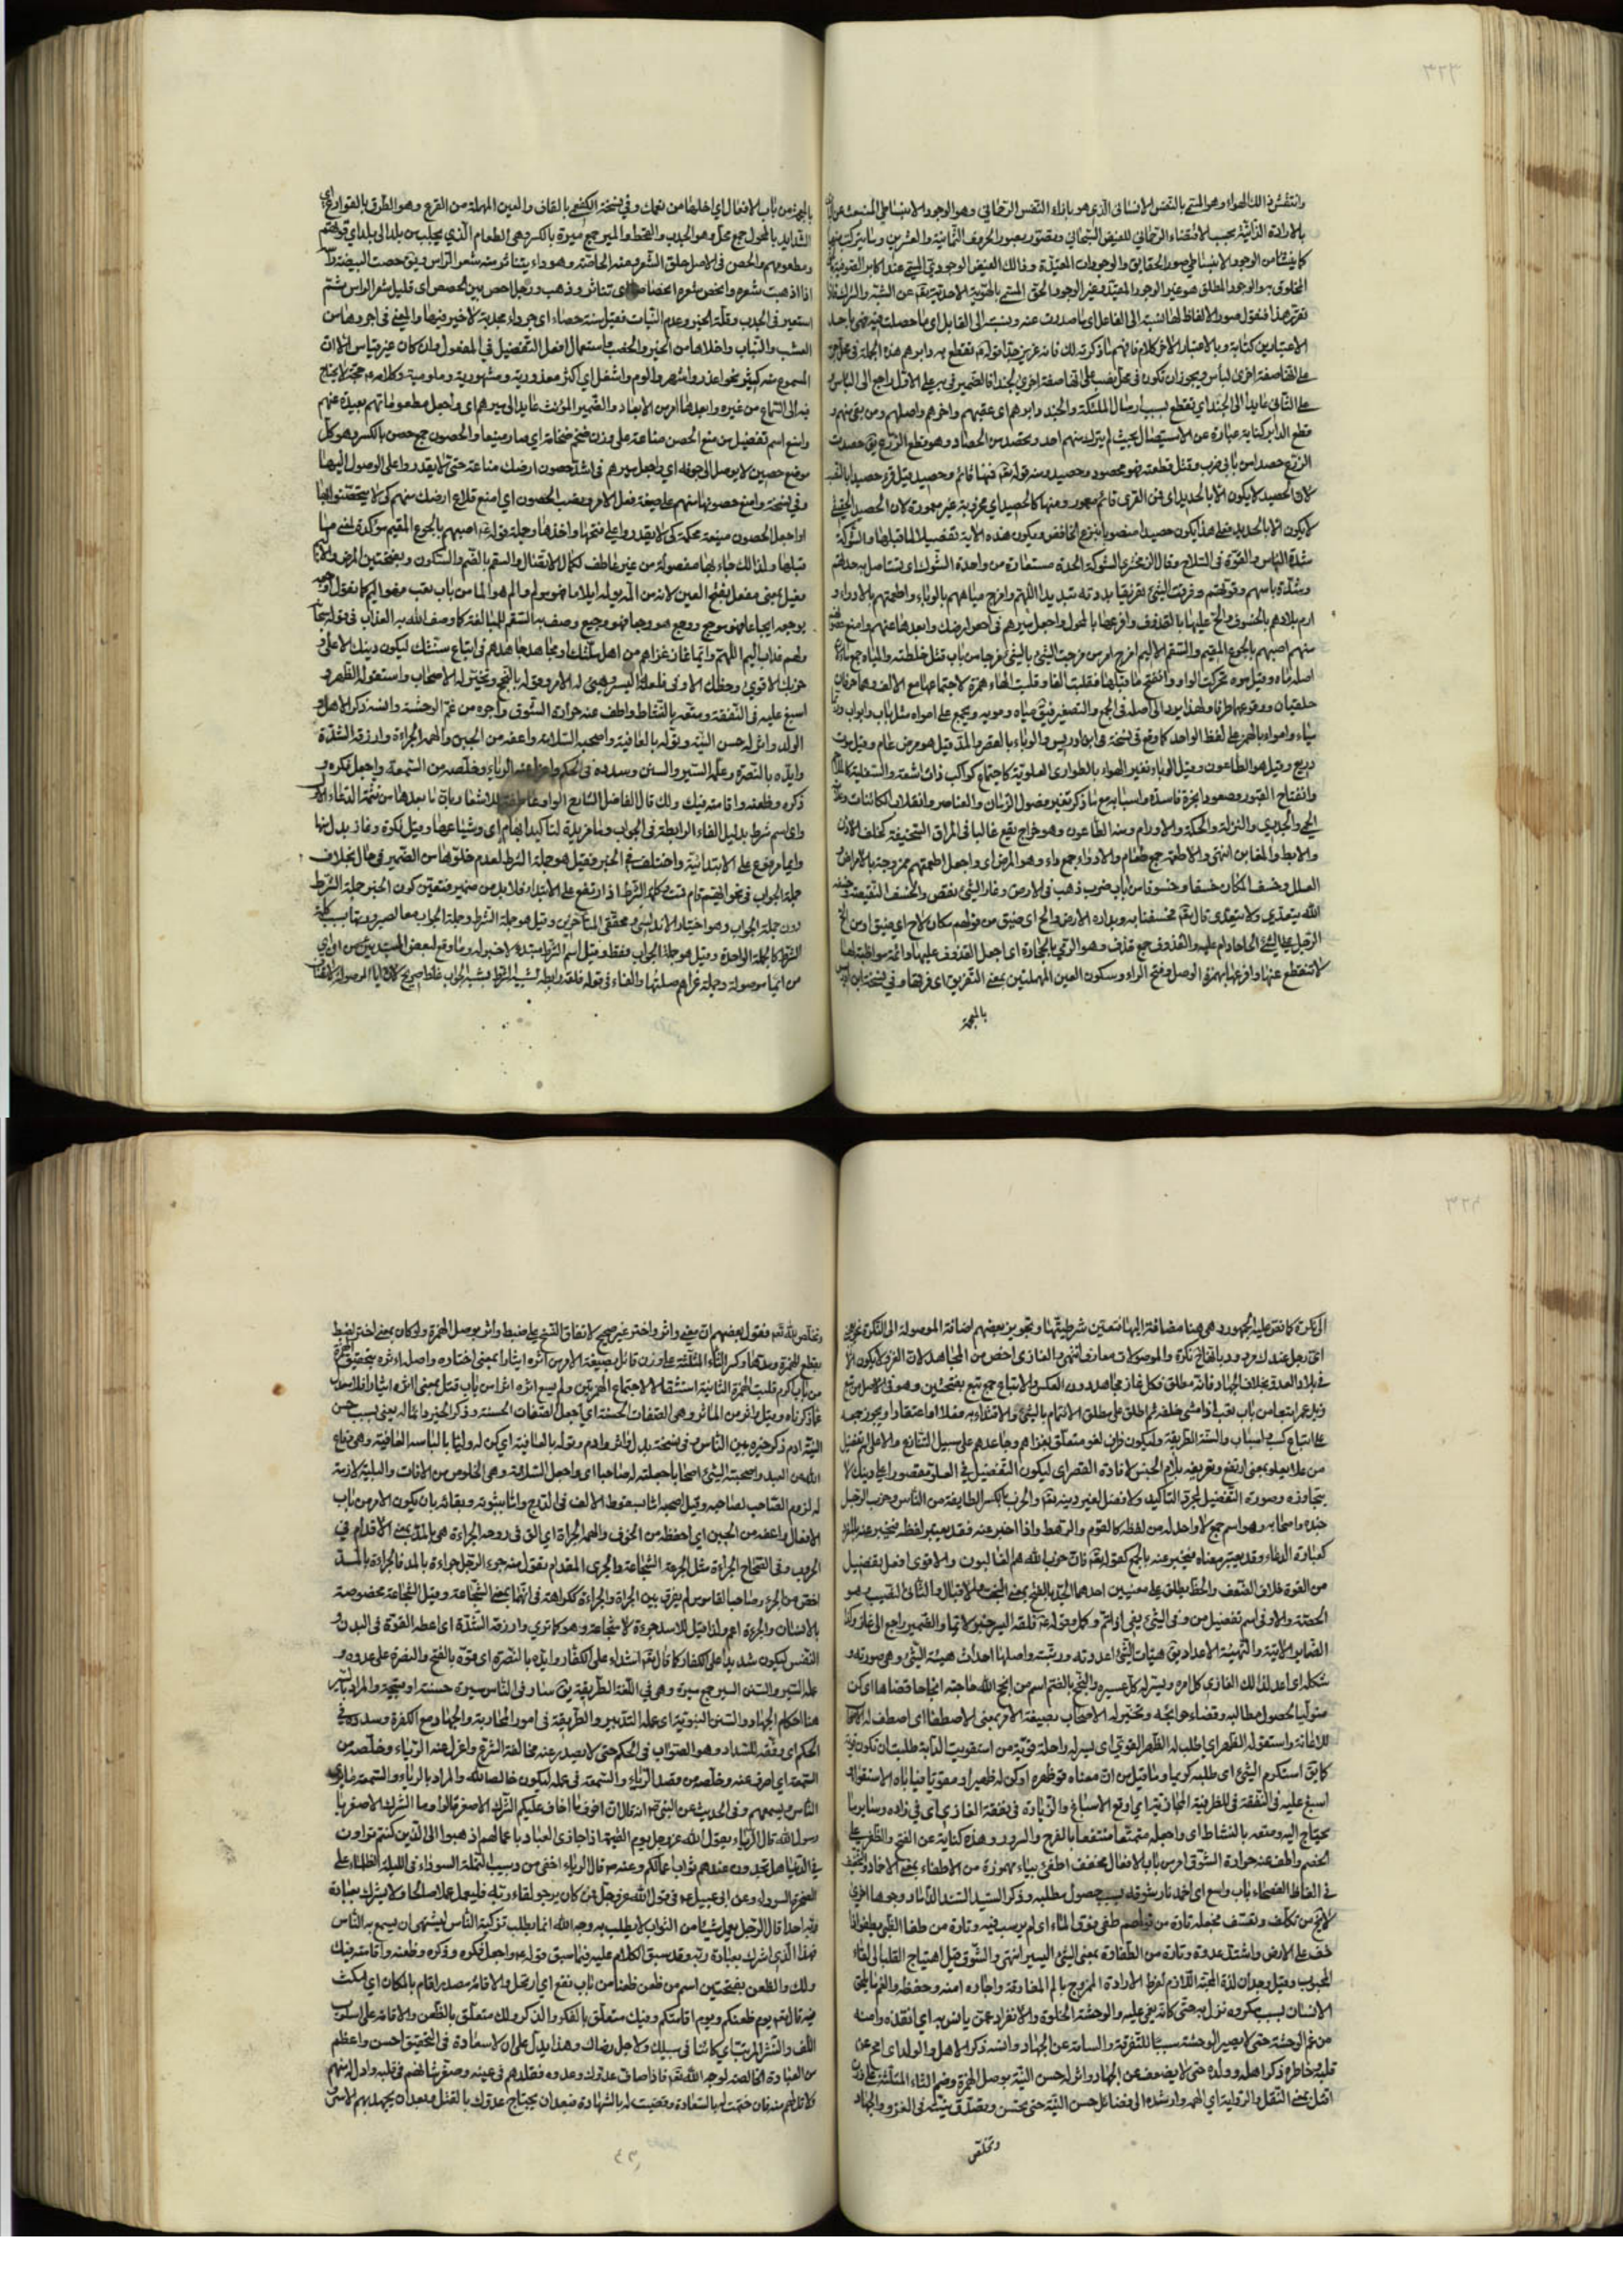 وانتقش ذالك الهواء وهو المسمى بالنفس الانسانى الذى هو بازاء النفس الرحمانى وهو الوجود الانبساطى المنبعث عن
بالارادة الذاتية بحسب الاقتضاء الرحمانى للفيض السبحانى ومتصور بصور الحروف الثمانية والعشرين وما يتركب منها
المخلوق به والوجود المطلق هو غير الوجود المقيد وغير الوجود الحق المسمى بالهوية الاحدية تعالى عن الشبه والشرك
على انها صفة اخرى لباس ويجوز ان تكون فى محل نصب على انها صفة اخرى لجندا فالضمير فى به على الاول راجع الى الباس
على الثانى عايد الى الجند اى تقطع بسبب ارسال الملئكة والجند دابرهم اى عقبهم واخرهم واصلهم ومن بقى منهم و
قطع الدابر كناية عبارة عن الاستيصال بحيث لم يترك منهم احد وتحصد من الحصاد وهو قطع الزرع يق حصدت
الزرع حصدا من باب ضرب وقتل قطعته فهو محصود وحصيد ومنه قوله تعالى منها قائم وحصيد
لان الحصيد لا يكون الا بالحديد اى فمن القرى قائم معمور ومنها كالحصيد اى مخروبة غير معمورة لان الحصيد الحقيقى
لا يكون الا بالحديد فعلى هذا يكون حصيدا منصوبا بنزع الخافض ويكون هذه الاية تفصيلا لما قبلها والشوكة
شدة الباس والقوة فى السلاح وقال الزمخشرى الشوكة الحدة مستعارة من واحدة الشوك اى تستاصل به حدتهم
وشدة باسهم وقوتهم وفرقت الشئ تفريقا بددته تبديدا اللهم وامزج مياههم بالوباء واطعمتهم بالادواء و
ارم بلادهم بالخسوف والح عليها بالقذوف وافرعها بالمحول واجعل ميرهم فى احص ارضك وابعدها عنهم وامنع حصونها
منهم اصبهم بالجوع المقيم والسقم الاليم امزج امر من مزجت الشئ بالشئ مزجا من باب قتل خلطته والمياه جمع ماء
اصله ماه وقيل موه تحركت الواو وانفتح ما قبلها فقلبت الفا وقلبت الهاء همزة لاجتماعها مع الالف وهما حرفان
حلقيان ووقوعهما طرفا ولهذا يرد الى اصله فى الجمع والتصغير فيق مياه ومويه ويجمع على امواه مثل باب وابواب
ذريع وقيل هو الطاعون وقيل الوباء تغير الهواء بالطوارى العلوية كاجتماع كواكب ذات اشعة والسفلية كالملاحم
وانفتاح القبور وصعود ابخرة فاسدة واسبابه مع ما ذكر تغير فصول الزمان والعناصر وانقلاب الكائنات
الحمى والجدرى والنزلة والحكة والاورام ومنه الطاعون وهو خراج يقع غالبا فى المراق السخيفة كخلف الاذن
والابط والمغابن انتهى والاطعمة جمع طعام والادواء جمع داء وهو المرض اى واجعل اطعمتهم ممزوجة بالامراض
العلل وخسف المكان خسفا وخسوفا من باب ضرب ذهب فى الارض وغار الشئ نقص والخسف النقيصة
الله يتعدى ولا يتعدى قال تعالى فخسفنا به وبداره الارض والح اى ضيق من قولهم مكان لاح اى ضيق او من الح
الرجل على الشئ الحاحا دام عليه والقذوف جمع قذف وهو الرمى بالحجارة اى اجعل القذوف عليها دائمة مواظبة لها
لا تنقطع عنها وافرعها بهمزة الوصل وفتح الراء وسكون العين المهملتين بمعنى التفريق اى فرقها وفى نسخة ابن
بالمعجمة
بالمعجمة من باب الافعال اى اخلها من نعمك وفى نسخة الكفعمى بالقاف والعين المهملة من القرع وهو الطرق بالقوارع اى
الشدايد بالمحول جمع محل وهو الجدب والقحط والمير جمع ميرة بالكسر وهى الطعام الذى يجلب من بلد الى بلد اى قوتهم
ومطعومهم والحص فى الاصل حلق الشعر ومنه الحاصة وهو داء يتناثر منه شعر الراس ويق حصت البيضة راسه
اذا اذهبت شعره وانحص شعره انحصاصا اى تناثر وذهب ورجل احص بين الحصص اى قليل شعر الراس ثم
استعير فى الجدب وقلة الخير وعدم النبات فقيل سنة حصاء اى جرداء مجدبة لا خير فيها والمعنى فى اجردها من
العشب والنبات واخلاها من الخير والخصب واستعمال افعل التفضيل فى المفعول وان كان غير قياس الا ان
المسموع منه كثير نحو اعذر واشهر والوم واشغل اى اكثر معذورية ومشهورية وملومية وكلامه عه حجة لا يحتاج
فيه الى السماع من غيره وابعدها امر من الابعاد والضمير المؤنث عايد الى ميرهم اى واجعل مطعوماتهم بعيدة عنهم
وامنع اسم تفضيل من منع الحصن مناعة على وزن ضخم ضخامة اى صار منيعا والحصون جمع حصن بالكسر وهو كل
موضع حصين لا يوصل الى جوفه اى واجعل ميرهم فى اشد حصون ارضك مناعة حتى لا يقدروا على الوصول اليها
وفى نسخة وامنع حصونها منهم على صيغة فعل الامر ونصب الحصون اى امنع قلاع ارضك منهم كى لا يتحصنوا بها
او اجعل الحصون منيعة محكمة كى لا يقدروا على فتحها واخذها وجملة قوله عه اصبهم بالجوع المقيم مؤكدة لمعنى ما
قبلها ولذالك جاء بها مفصولة من غير عاطف لكمال الاتصال والسقم بالضم والسكون وبفتحتين المرض والاليم
ولهم عذاب اليم اللهم وايما غاز غزاهم من اهل ملتك او مجاهد جاهدهم من اتباع سنتك ليكون دينك الاعلى و
حزبك الاقوى وحظك الاوفى فلقه اليسر وهيئ له الامر وتوله بالنجح وتخير له الاصحاب واستقو له الظهر و
اسبغ عليه فى النفقة ومتعه بالنشاط واطف عنه حرارة الشوق واجره من غم الوحشة وانسه ذكر الاهل و
الولد واثر له حسن النية وتوله بالعافية واصحبه السلامة واعفه من الجبن والهمه الجراءة وارزقه الشدة
وايده بالنصرة وعلمه السير والسنن وسدده فى الحكم واعزل عنه الرياء وخلصه من السمعة واجعل فكره و
ذكره وظعنه واقامته فيك ولك قال الفاضل الشارح الواو
واى اسم شرط بدليل الفاء الرابطة فى الجواب وما مزيدة لتاكيد ابهام اى وشياعها وقيل نكرة وغاز بدل منها
وايما مرفوع على الابتدائية واختلف فى الخبر فقيل هو جملة الشرط لعدم خلوها من الضمير فى حال بخلاف
جملة الجواب فى نحو ايهم قام قمت
دون جملة الجواب وهو اختيار الاندلسى ومحققى المتاخرين وقيل هو جملة الشرط وجملة الجواب معا لصيرورتهما بسبب كلمة
الشرط كالجملة الواحدة وقيل هو جملة الجواب فقط وقيل اسم الشرط مبتدء لا خبر له وما وقع لبعض المبتدئين من ان اى
من ايما موصولة وجملة غزاهم صلتها والفاء فى قوله فلقه رابطة لشبه الشرط بشبه الجواب غلط صريح لان ايا الموصولة لا تضاف
الى نكرة كما نص عليه الجمهور وهى هنا مضافة اليها فتعين شرطيتها وتجويز بعضهم اضافة الموصولة الى النكرة نحو يعجبنى
اى رجل عندك مردود باتفاق نكرة والموصولات معارف انتهى والغازى اخص من المجاهد لان الغزو لا يكون الا
فى بلاد العدو بخلاف الجهاد فانه مطلق فكل غاز مجاهد دون العكس والاتباع جمع تبع بفتحتين وهو فى الاصل من تبع
زيد عمرا تبعا من باب تعب اذا مشى خلفه ثم اطلق على مطلق الائتمام بالشئ والاقتداء به فعلا او اعتقادا ويجوز جمعه
على اتباع كسبب واسباب والسنة الطريقة وليكون ظرف لغو متعلق بغزاهم وجاهدهم على سبيل التنازع والاعلى افعل تفضيل
من علا يعلو بمعنى ارتفع وتعريفه بلام الجنس لافادة القصر اى ليكون التفضيل فى العلو مقصورا على دينك لا
يتجاوزه وصورة التفضيل لمجرد التاكيد ولا فضل لغير دينه تعالى والحزب بالكسر الطايفة من الناس وحزب الرجل
جنده واصحابه وهو اسم جمع لا واحد له من لفظه كالقوم والرهط واذا اخبر عنه فقد يعتبر لفظه فيخبر عنه بالمفرد
كعبارة الدعاء وقد يعتبر معناه فيخبر عنه بالجمع كقوله تعالى فان حزب الله هم الغالبون والاقوى افعل تفضيل
من القوة خلاف الضعف والحظ يطلق على معنيين احدهما الجد بالفتح بمعنى البخت والاقبال والثانى النصيب وهو
الحصة والاوفى اسم تفضيل من وفى الشئ يفى اذا تم وكمل وقوله عه فلقه اليسر خبر لايما والضمير راجع الى الغاز وكذا
الضماير الاتية والتهيئة الاعداد يق هيات الشئ اعددته ورتبته واصلها احداث هيئة الشئ وهى صورته و
شكله اى اعد لذالك الغازى كل امره ويسر له كل عسيره والنجح بالضم اسم من انجح الله حاجته انجاحا قضاها اى كن
متوليا لحصول مطالبه وقضاء حوائجه وتخير له الاصحاب بصيغة الامر بمعنى الاصطفاء اى اصطف له الاصحاب
للاعانة واستقو له الظهر اى اطلب له الظهر القوى اى يسر له راحلة قوية من استقويت الدابة طلبت ان تكون قوية
كما يق استكرم الشئ اى طلبه كريما وما قيل من ان معناه قو ظهره او كن له ظهيرا ومقويا فياباه الاستفعال
اسبغ عليه فى النفقة فى للظرفية المجازية اى اوقع الاسباغ والزيادة فى نفقة الغازى اى فى زاده وساير ما
يحتاج اليه ومتعه بالنشاط اى واجعله متمتعا منتفعا بالفرح والسرور وهذه كناية عن الفتح والظفر على
الخصم واطف عنه حرارة الشوق امر من باب الافعال مخفف اطفئ بياء مهموزة من الاطفاء بمعنى الاخماد والتخفيف
فى الفاظ الفصحاء باب واسع اى اخمد نار شوقه بسبب حصول مطلبه وذكر السيد السند الداماد وجوها اخرى
لا تخ من تكلف وتعسف فجعله تارة من قولهم طفى فوق الماء اى لم يرسب فيه وتارة من طفا الظبى يطفو اذا
خف على الارض واشتد عدوه وتارة من الطفاوة بمعنى الشئ اليسير انتهى والشوق قيل اهتياج القلب الى لقاء
المحبوب وقيل وجدان لذة المحبة اللازم لفرط الارادة الممزوج بالم المفارقة واجاره امنه وحفظه والغم ما يلحق
الانسان بسبب مكروه نزل به حتى كانه يغمى عليه والوحشة الخلوة والانفراد عمن يانس به اى انقذه وامنه
من غم الوحشة حتى لا يصير الوحشة سببا للتفرقة والسامة عن الجهاد وانسه ذكر الاهل والولد اى امح عن
قلبه وخاطره ذكر اهله وولده حتى لا يضعف عن الجهاد واثر له حسن النية بوصل الهمزة وضم الثاء المثلثة على وزن
اقتل بمعنى النقل والرواية اى الهمه وارشده الى فضائل حسن النية حتى يحسن ويصدق نيته فى الغزو والجهاد
وتخلص
وتخلص لله تعالى فقول بعضهم ان معنى واثر واختر غير صحيح لاتفاق النسخ على ضبط واثر بوصل الهمزة ولو كان بمعنى اختر لضبط
بقطع الهمزة ومدها وكسر الثاء المثلثة على وزن قاتل بصيغة الامر من آثره ايثارا بمعنى اختاره واصله اءثره بتحقيق الهمزة
من باب اكرم قلبت الهمزة الثانية استثقالا لاجتماع الهمزتين ولم يسمع اثره اثرا من باب قتل بمعنى اثره ايثارا فلا معدل
عما ذكرناه وقيل واثر من الماثر وهى الصفات الحسنة اى اجعل الصفات الحسنة وذكر الخير دائما له يعنى بسبب حسن
النية ادم ذكر خيره بين الناس وفى نسخة بدل واثر وادم وتوله بالعافية اى كن له وليا بالباسه العافية وهى دفاع
الله عن العبد واصحبته الشئ اصحابا جعلته له صاحبا اى واجعل السلامة وهى الخلوص من الافات والبلية لازمة
له لزوم الصاحب لصاحبه
الافعال واعفه من الجبن اى احفظه من الخوف والهمه الجراة اى الق فى روعه الجراءة هى بالمد بمعنى الاقدام فى
الحروب وفى الصحاح الجراءة مثل الجرعة الشجاعة والجرى المقدام تقول منه جرء الرجل جراءة بالمد فالجراءة بالمد
اخص من الجرء وصاحب القاموس لم يفرق بين الجراة والجراءة ككراهة فى انهما بمعنى الشجاعة وقيل الشجاعة مخصوصة
بالانسان والجرءة اعم ولذا قيل للاسد جرءة لا شجاعة وهو كما ترى وارزقه الشدة اى اعطه القوة فى البدن و
النفس ليكون شديدا على الكفار كما قال تعالى اشداء على الكفار وايده بالنصرة اى قوه بالفتح والنصرة على عدوه و
علمه السير والسنن السير جمع سيرة وهى فى اللغة الطريقة يق سار فى الناس سيرة حسنة او قبيحة والمراد بالسير
هنا احكام الجهاد والسنن النبوية اى علمه التدبير والطريقة فى امور المحاربة والجهاد مع الكفرة وسدده فى
الحكم اى وفقه للسداد وهو الصواب فى الحكم حتى لا يصدر عنه مخالفة الشرع واعزل عنه الرياء وخلصه من
السمعة اى اصرف عنه وخلصه من قصد الرياء والسمعة فى عمله ليكون خالصا لله والمراد بالرياء والسمعة ما يراه
الناس ويسمعهم وفى الحديث عن النبى ص انه قال ان اخوف ما اخاف عليكم الشرك الاصغر قالوا وما الشرك الاصغر يا
رسول الله قال الرياء يقول الله عز وجل يوم القيمة اذا جازى العباد باعمالهم اذهبوا الى الذين كنتم تراءون
فى الدنيا هل تجدون عندهم ثواب اعمالكم وعنه ص قال الرياء اخفى من دبيب النملة السوداء فى الليلة الظلماء على
الصخرة السوداء وعن ابى عبد الله عه فى قول الله عز وجل فمن كان يرجو لقاء ربه فليعمل عملا صالحا ولا يشرك بعبادة
ربه احدا قال الرجل يعمل شيئا من الثواب لا يطلب به وجه الله انما يطلب تزكية الناس يشتهى ان يسمع به الناس
فهذا الذى اشرك بعبادة ربه وقد سبق الكلام عليه فيما سبق وقوله عه واجعل فكره وذكره وظعنه واقامته فيك
ولك والظعن بفتحتين اسم من ظعن ظعنا من باب نفع اى ارتحل والاقامة مصدر اقام بالمكان اى مكث
فيه قال تعالى يوم ظعنكم ويوم اقامتكم وفيك متعلق بالفكر والذكر ولك متعلق بالظعن والاقامة على اسلوب
اللف والنشر المرتب اى كائنا فى سبيلك ولاجل رضاك وهذا يدل على ان لا سعادة فى التحقيق احسن واعظم
من العبادة الخالصة لوجه الله تعالى فاذا صاف عدوك وعدوه فقللهم فى عينه وصغر شانهم فى قلبه وادل له منهم
ولا تدلهم منه فان ختمت له بالسعادة وقضيت له بالشهادة فبعد ان يجتاح عدوك بالقتل وبعد ان يجهد بهم الاسر